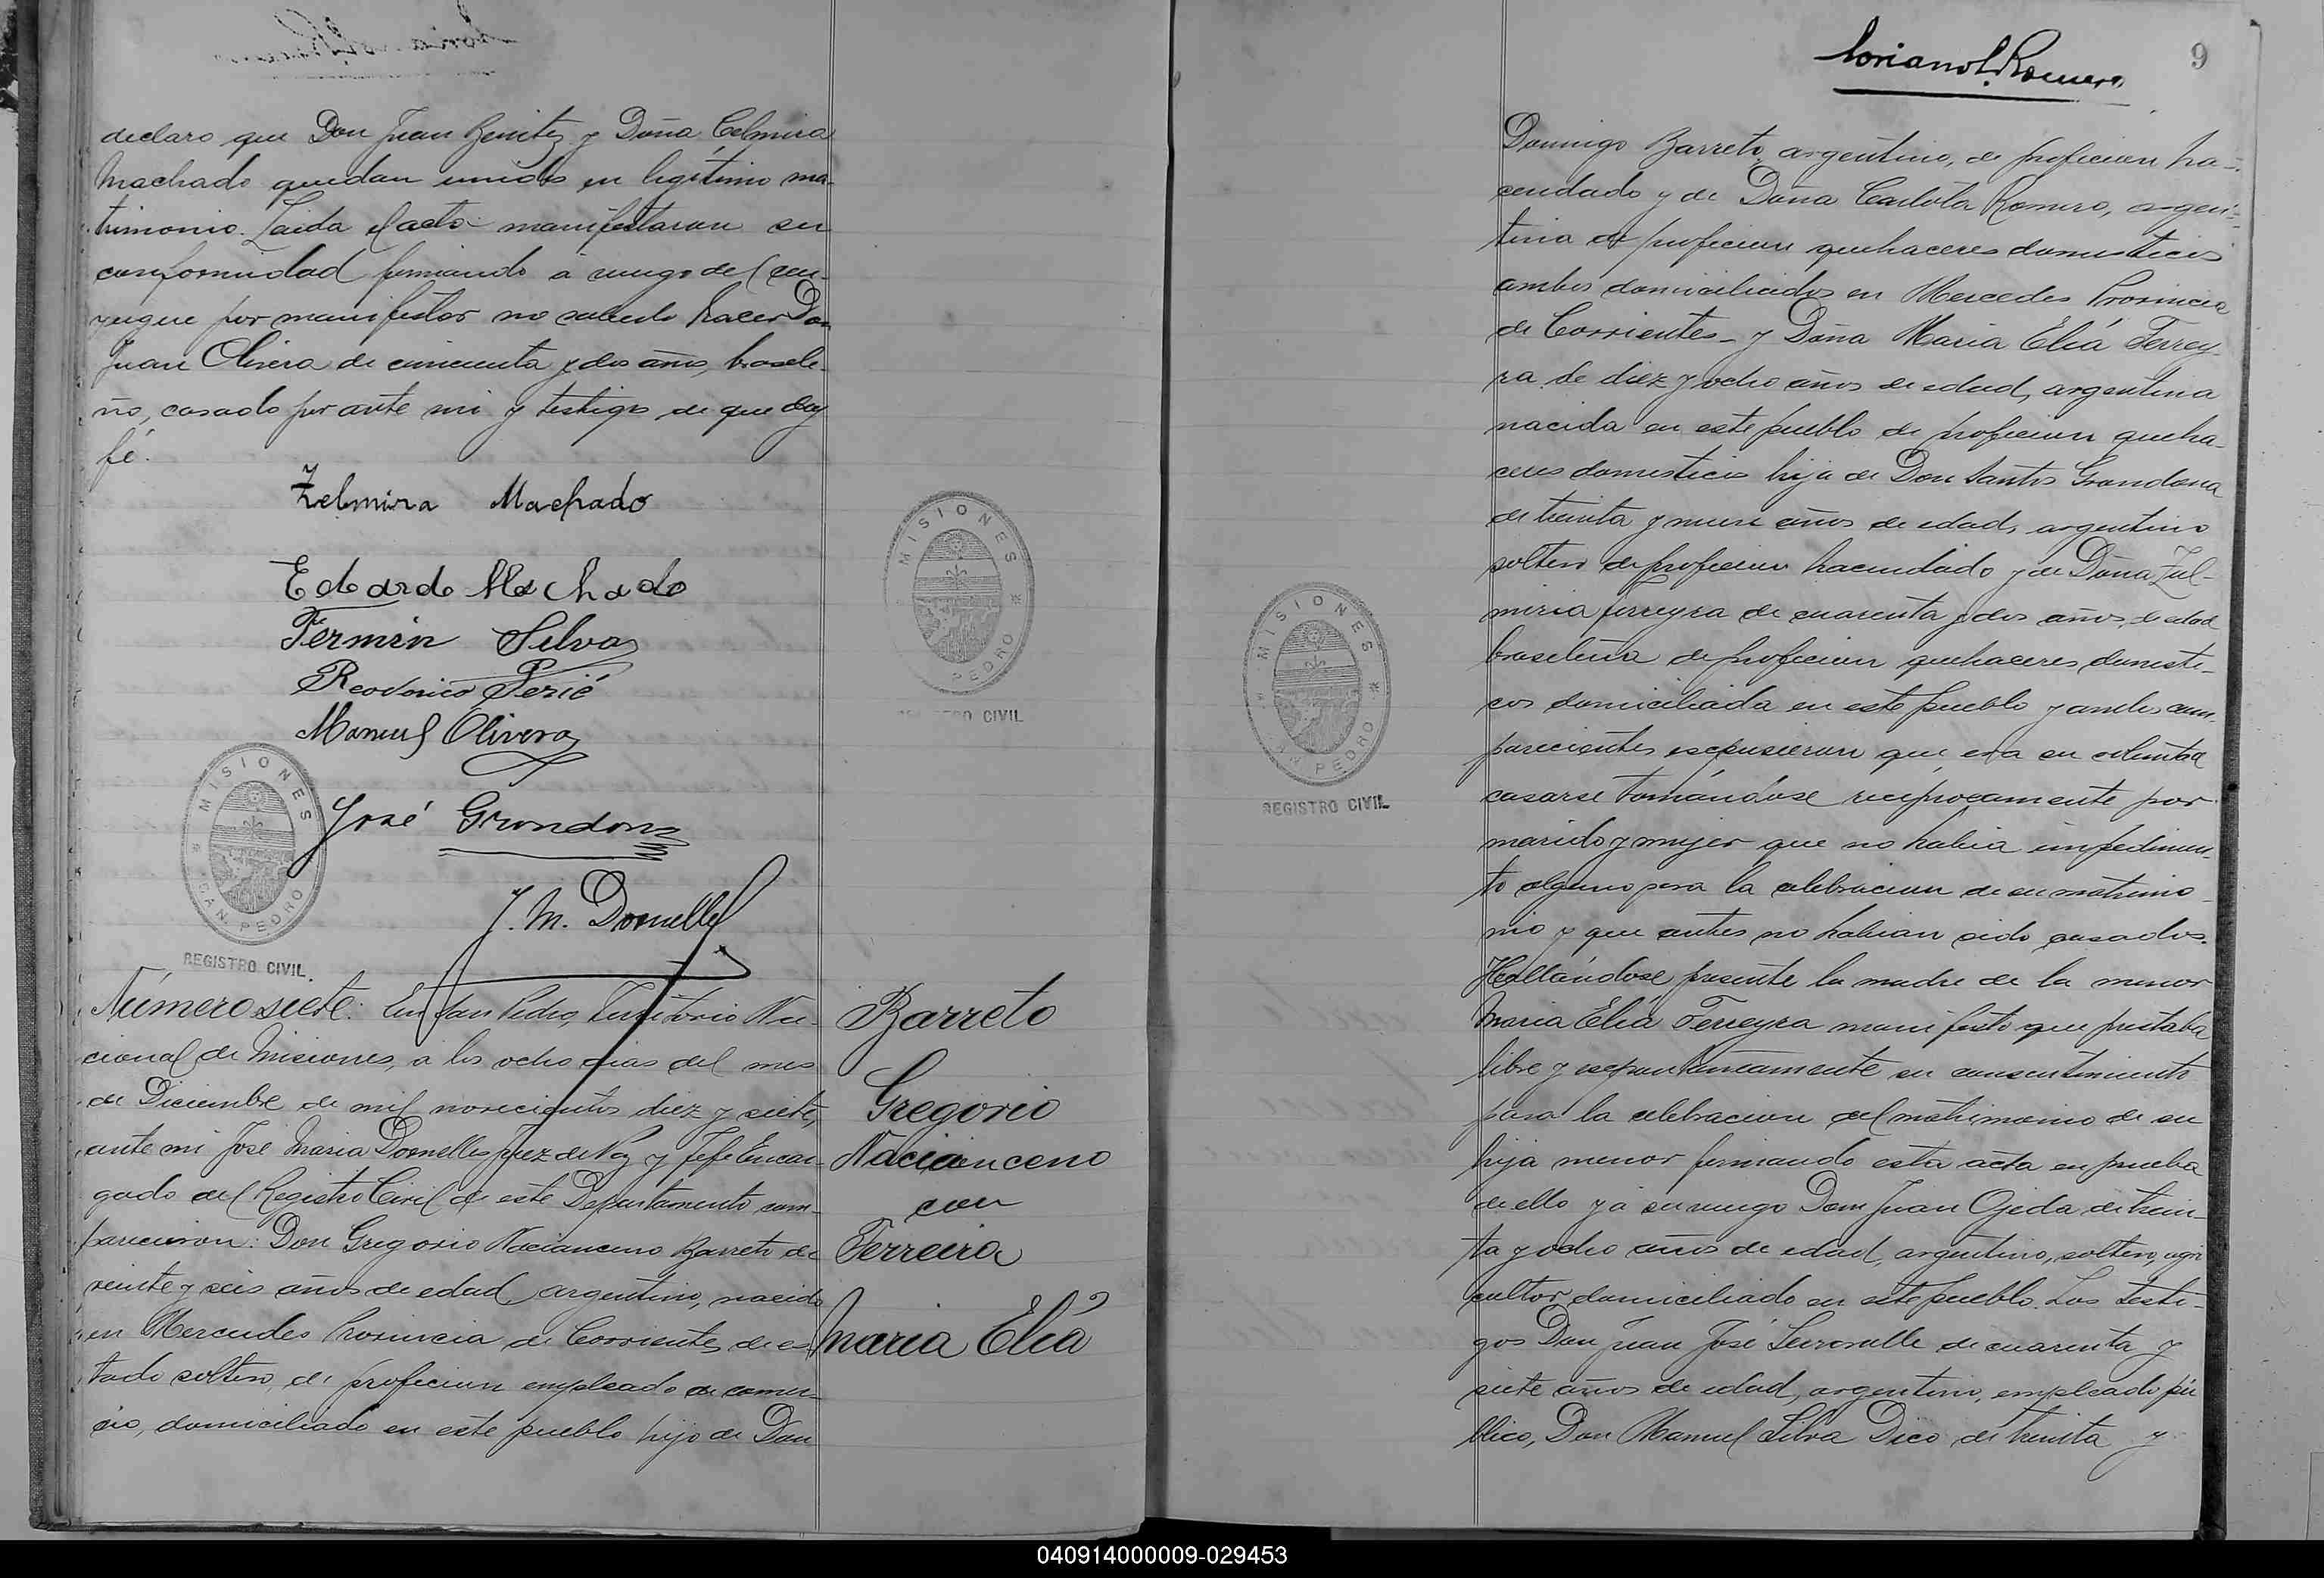 declaro que Don Juan Benitez y Doña Celmira
Machado quedan unidos en legitimo ma-
trimonio. Laida el acto manifestaron su
conformidad firmando á ruego del con-
yugue por manifestar no saberlo hacer Don
Juan Olivera de cincuenta y dos años, brasile-
ño, casado por ante mi y testigos de que doy
fé.
Zelmira Machado
Edoardo Machado
Fermin Silva
Manuel Olivera
José Grondona
J. M. Dornelles
MISIONES
SAN PEDRO
REGISTRO CIVIL.
Número siete: En San Pedro, Territorio Na-
cional de Misiones, a los ocho dias del mes
de Diciembre de mil novecientos diez y siete,
ante mi José Maria Dornelles Juez de Paz y Jefe Encar-
gado del Registro Civil de este Departamento com-
parecieron: Don Gregorio Nacianceno Barreto de
veinte y seis años de edad, argentino, nacido
en Mercedes Provincia de Corrientes, de es-
tado soltero, de profecion empleado de comer-
cio, domiciliado en este pueblo hijo de Don
MISIONES
PEDRO
REGISTRO CIVIL
Barreto
Gregorio
Nacianceno
con
Ferreira
Maria Eliá
9
MISIONES
PEDRO
REGISTRO CIVIL
Domingo Barreto argentino, de profecion ha-
cendado y de Doña Carlota Romero, argen-
tina de profecion quehaceres domesticos
ambos domiciliados en Mercedes Provincia
de Corrientes - y Doña Maria Eliá Ferrey-
ra de diez y ocho años de edad, argentina
nacida en este pueblo de profecion queha-
ceres domesticos hija de Don Santos Grondona
de treinta y nueve años de edad, argentino
soltero de profecion hacendado y de Doña Zul-
miria ferreyra de cuarenta y dos años de edad
brasileña de profecion quehaceres domesti-
cos domiciliada en este pueblo y ambos com-
parecientes espusieron que era su voluntad
casarse tomándose reciprocamente por
marido y mujer que no habia impedimen-
to alguno para la celebracion de su matrimo-
nio y que antes no habian sido casados.
Hallándose presente la madre de la menor
Maria Eliá Ferreyra manifestó que prestaba
libre y espontaneamente su consentimiento
para la celebracion del matrimonio de su
hija menor firmando esta acta en prueba
de ello y á su ruego Don Juan Ojeda de trein-
ta y ocho años de edad, argentino, soltero, agri
cultor domiciliado en este pueblo. Los testi-
gos Don Juan José de cuarenta y
siete años de edad, argentino, empleado pú
blico, Don Manuel Silva Dico de treinta y
040914000009-029453